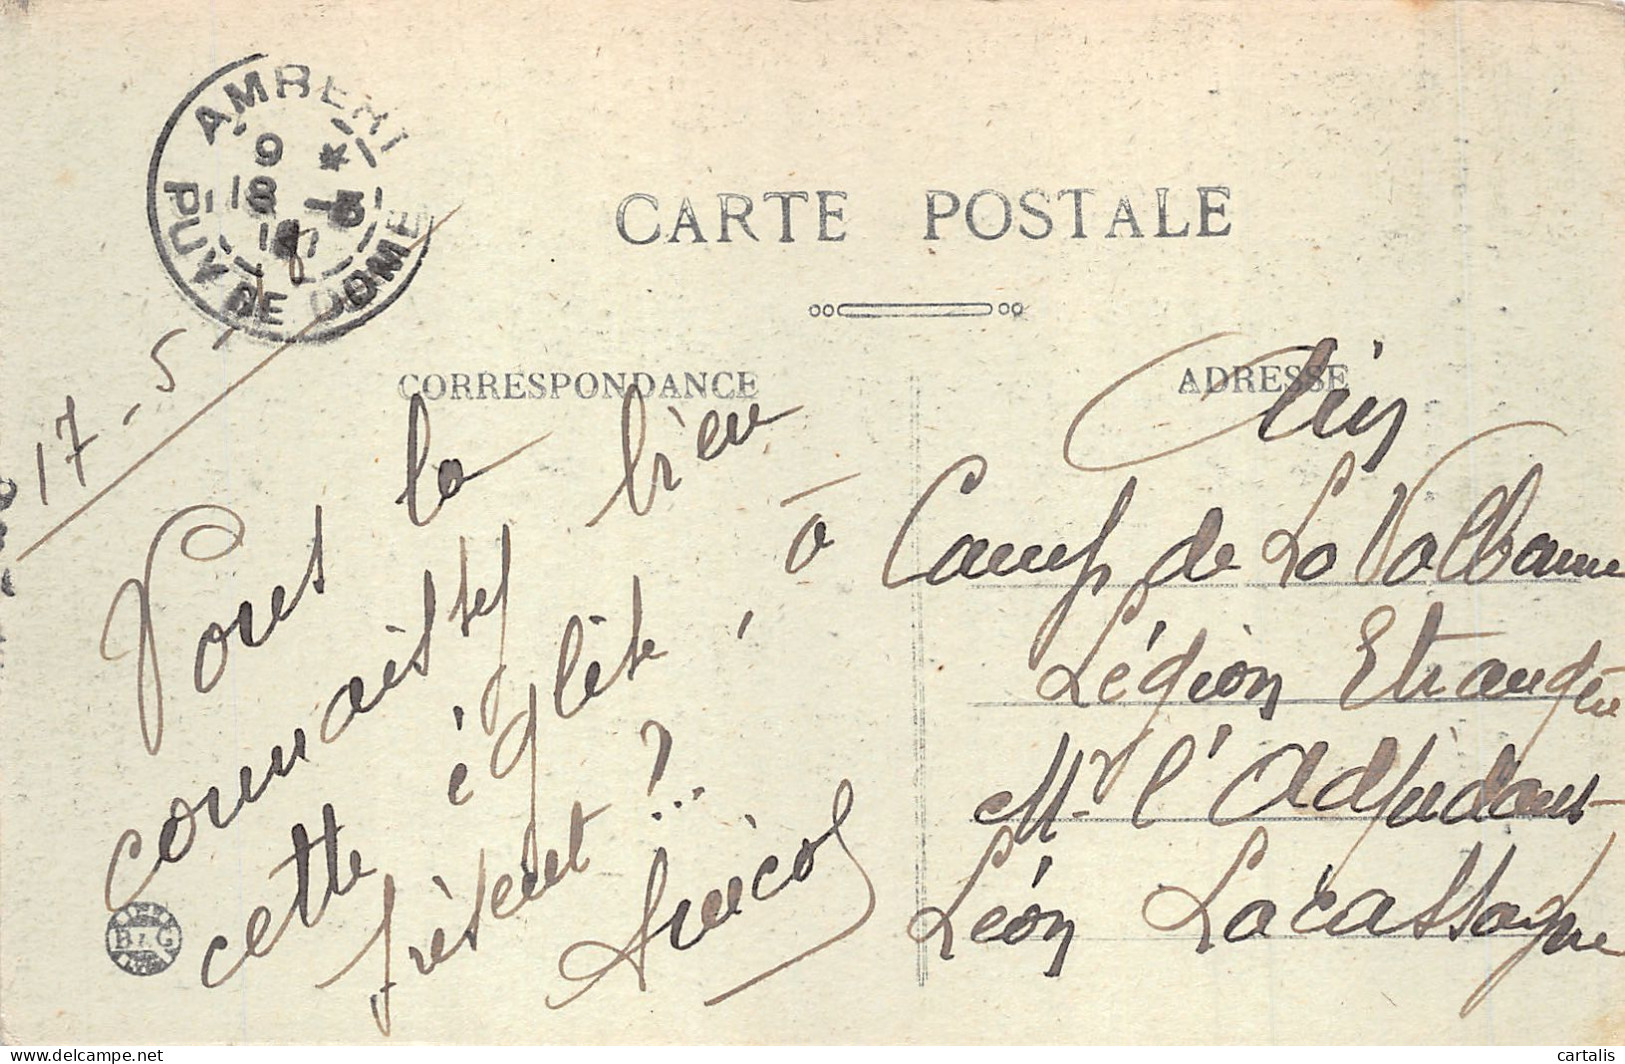 AMBERT
PUY DE DOME
CARTE POSTALE
CORRESPONDANCE
ADRESSE
17-5-18
Vous la
connaissez bien
cette église, à
présent ?..
Ain
Camp de La Valbonne
Légion Etrangère
Mr l'Adjudant
Léon Lacassagne
B & G
cartalis
www.delcampe.net